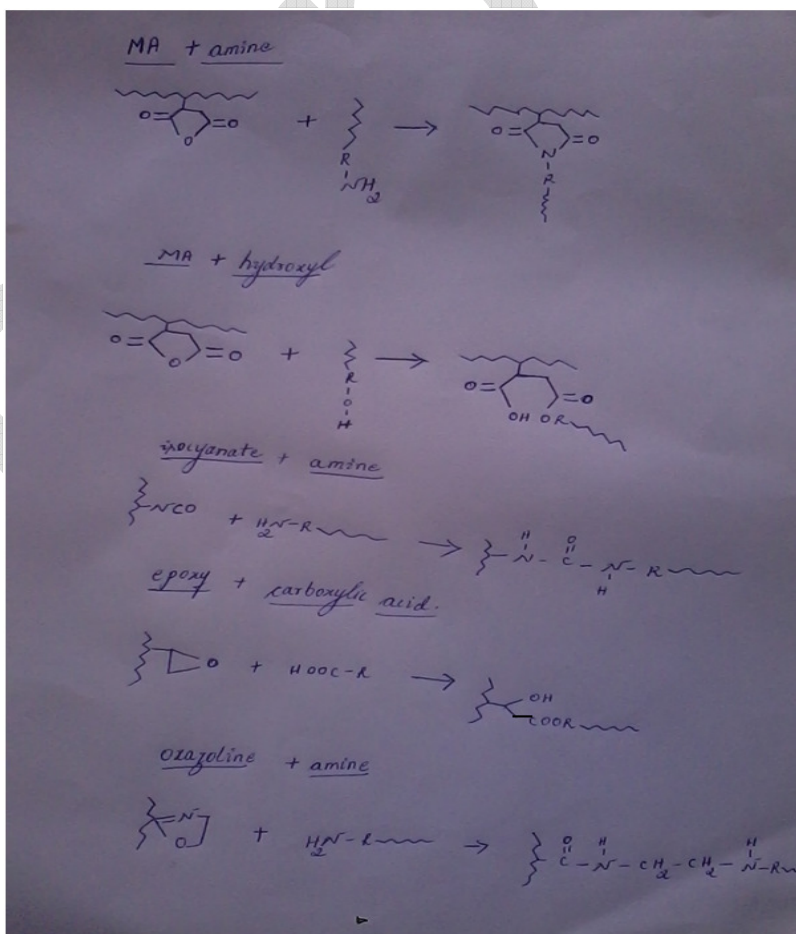 MA + amine
O= =O + R → O= =O
O NH2 N
R
MA + hydroxyl
O= =O + R → O= =O
O O OH OR
H
isocyanate + amine
NCO + H2N-R → H O
N - C - N - R
H
epoxy + carboxylic acid.
O + HOOC-R → OH
COOR
oxazoline + amine
=N O + H2N-R → O H H
C - N - CH2 - CH2 - N-R